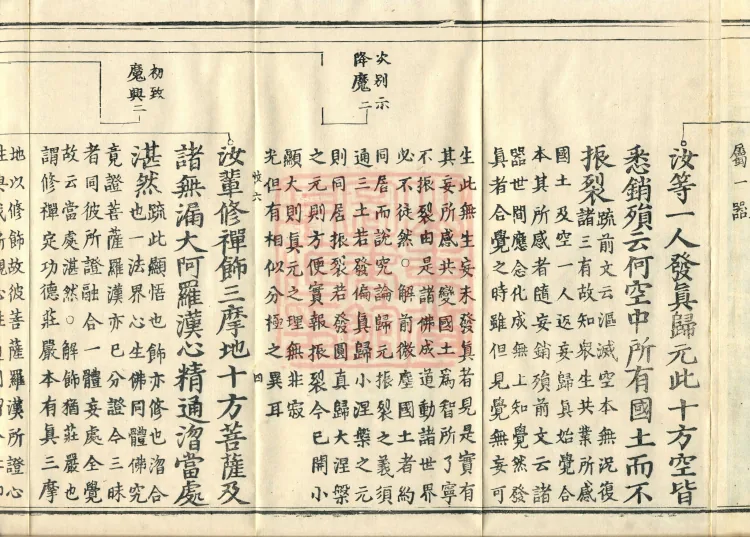 屬一器
汝等一人發眞歸元此十方空皆
悉銷殞云何空中所有國土而不
振裂
疏前文云漚滅空本無況復
諸三有故知衆生共業所感
國土及空一人返妄歸眞始覺合
本其所感者隨妄銷殞前文云諸
器世間應念化成無上知覺然發
眞者合覺之時雖但見覺無妄可
生此無生妄未發眞者見是實有
其妄所感共變國土爲智所了寧
不振裂由是諸佛成道動諸世界
必不徒然。解前微塵國土者約
同居而說究論歸元振裂之義須
通三土若發偏眞歸小涅槃之元
則同居振裂若發圓真歸大涅槃
之元則方便實報振裂今已開小
顯大則眞元之理無非寂
光但有相似分極之異耳
次別示
降魔二
六
四
初致
魔興二
汝輩修禪飾三摩地十方菩薩及
諸無漏大阿羅漢心精通㳷當處
湛然
疏此顯悟也飾亦修也㳷合
也一法界心生佛同體佛究
竟證菩薩羅漢亦已分證今三昧
者同彼所證融合一體妄處全覺
故云當處湛然。解飾猶莊嚴也
謂修禪定功德莊嚴本有眞三摩
地以修飾故彼菩薩羅漢所證心